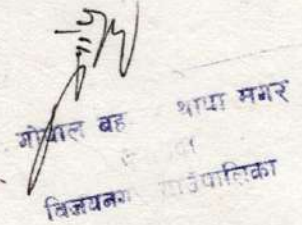 गोपाल बह थापा मगर
विजयनग गाउँपालिका